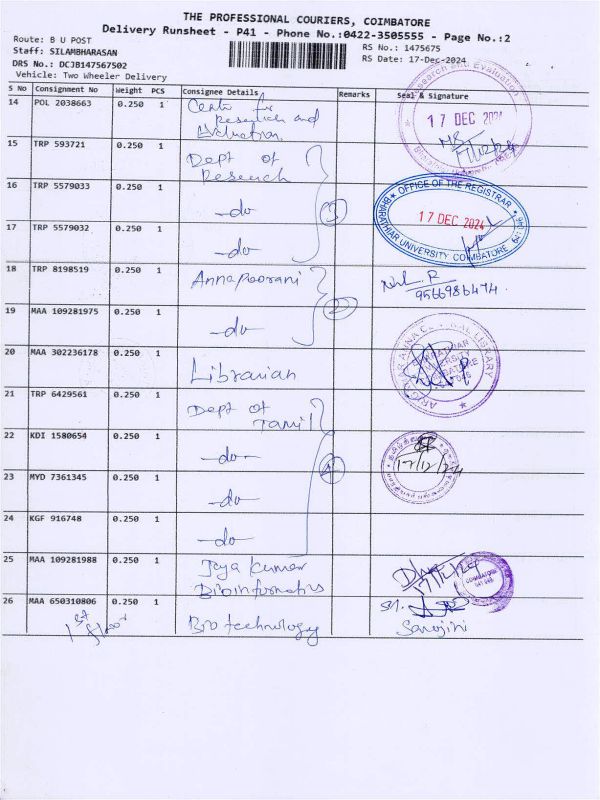 THE PROFESSIONAL COURIERS, COIMBATORE
Delivery Runsheet - P41 - Phone No.:0422-3505555 - Page No.:2
Route: B U POST
RS No.: 1475675
Staff: SILAMBHARASAN
RS Date: 17-Dec-2024
DRS No.: DCJB147567502
Vehicle: Two Wheeler Delivery
S No Consignment No Weight PCS Consignee Details Remarks Seal & Signature
14 POL 2038663 0.250 1 Centre for
Research and
Evaluation
Research and Evaluation
17 DEC 2024
17/12/24
15 TRP 593721 0.250 1 Dept of
Research
16 TRP 5579033 0.250 1 -do- 3
OFFICE OF THE REGISTRAR
17 DEC 2024
BHARATHIAR UNIVERSITY COIMBATORE
17 TRP 5579032 0.250 1 -do-
18 TRP 8198519 0.250 1 Annapoorani
9566986474
19 MAA 109281975 0.250 1 -do- 2
20 MAA 302236178 0.250 1 Librarian
LIBRARY
BHARATHIAR
UNIVERSITY
21 TRP 6429561 0.250 1 Dept of
Tamil
22 KDI 1580654 0.250 1 -do- 4
17/12/24
23 MYD 7361345 0.250 1 -do-
24 KGF 916748 0.250 1 -do-
25 MAA 109281988 0.250 1 Jaya Kumar
Bioinformatics
17/12/24
COIMBATORE
26 MAA 650310806 0.250 1 Bio technology
1st floor
Sarojini